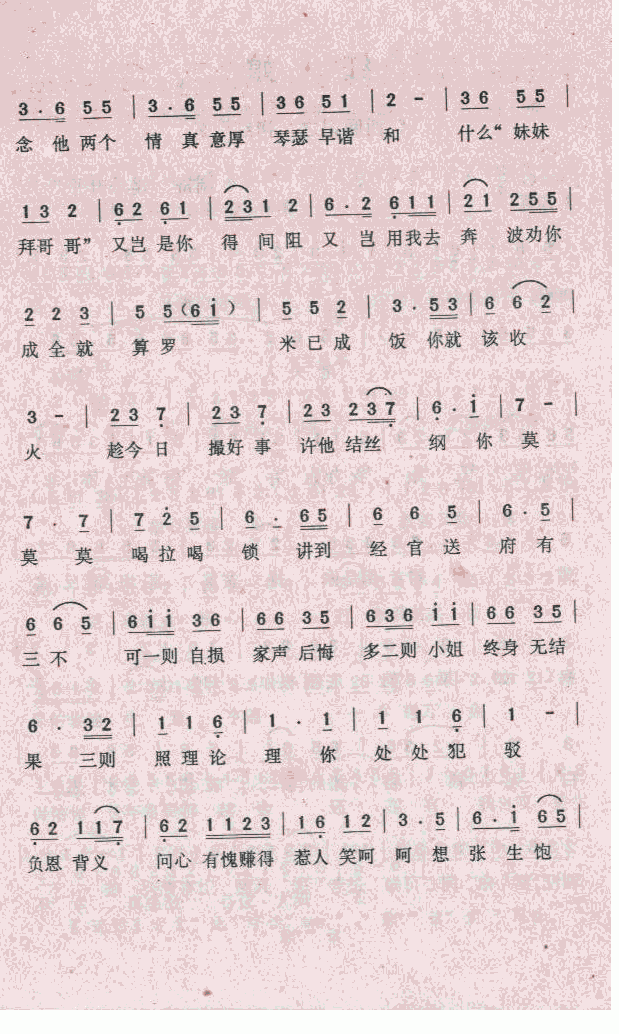 3 . 6 5 5 | 3 . 6 5 5 | 3 6 5 1 | 2 - | 3 6 5 5 |
念 他 两个 情 真 意厚 琴瑟 早谐 和 什么“ 妹妹
1 3 2 | 6 2 6 1 | 2 3 1 2 | 6 . 2 6 1 1 | 2 1 2 5 5 |
拜哥 哥” 又岂 是你 得 间阻 又 岂 用我去 奔 波劝你
2 2 3 | 5 5 ( 6 i ) | 5 5 2 | 3 . 5 3 | 6 6 2 |
成 全 就 算 罗 米 已 成 饭 你就 该 收
3 - | 2 3 7 | 2 3 7 | 2 3 2 3 7 | 6 . i | 7 - |
火 趁今 日 撮好 事 许他 结丝 纲 你 莫
7 . 7 | 7 2 5 | 6 . 6 5 | 6 6 5 | 6 . 5 |
莫 莫 喝 拉 喝 锁 讲到 经 官 送 府 有
6 6 5 | 6 i i 3 6 | 6 6 3 5 | 6 3 6 i i | 6 6 3 5 |
三 不 可一则 自损 家声 后悔 多二则 小姐 终身 无结
6 . 3 2 | 1 1 6 | 1 . 1 | 1 1 6 | 1 - |
果 三则 照 理 论 理 你 处 处 犯 驳
6 2 1 1 7 | 6 2 1 1 2 3 | 1 6 1 2 | 3 . 5 | 6 . i 6 5 |
负恩 背义 问心 有愧赚得 惹人 笑呵 呵 想 张 生 饱